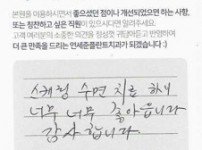 본원을 이용하시면서 좋으셨던 점이나 개선되었으면 하는 사항,
또는 칭찬하고 싶은 직원이 있으시다면 말씀해주세요.
고객 여러분의 소중한 의견을 정성껏 귀담아듣고 반영하여
더 큰 만족을 드리는 연세준플란트치과가 되겠습니다 :)
스케링 수면 치료 하니
너무 너무 좋아읍니다
감사합니다